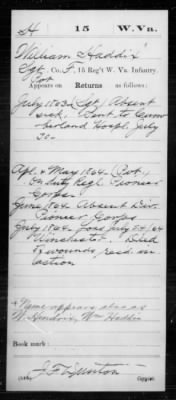 H 15 W. Va.
William Haddix
Sgt., Co. F, 15 Reg't W. Va. Infantry.
Pvt
Appears on Returns as follows:
July 1863 (Sgt) Absent
sick. Sent to Cum
berland Hospl. July
30
Apl. & May 1864 (Pvt.)
On duty Regl. Pioneer
Corps
June 1864. Absent Div.
Pioneer Corps
July 1864. Loss July 24/64
Winchester. Died
of wounds recd. in
action
* Name appears also as
W. Hendrix, Wm Haddix
Book mark:
Copyist.